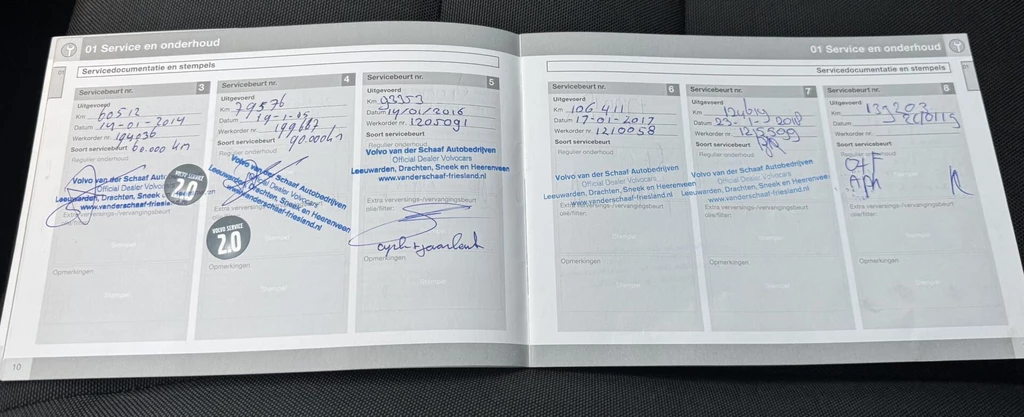 01 Service en onderhoud
Servicedocumentatie en stempels
Servicebeurt nr. 3
Uitgevoerd
Km 60512
Datum 14-01-2014
Werkorder nr. 194036
Soort servicebeurt 60.000 km
Regulier onderhoud
Volvo van der Schaaf Auto
Official Dealer Volvocars
Leeuwarden, Drachten, Sneek en Heerenveen
www.vanderschaaf-friesland
VOLVO SERVICE
2.0
Extra verversings-/vervangingsbeurt
olie/filter:
Stempel
Opmerkingen
Stempel
Servicebeurt nr. 4
Uitgevoerd
Km 79576
Datum 19-1-
Werkorder nr. 199687
Soort servicebeurt 90.000 km
Regulier onderhoud
Volvo van der Schaaf Autobedrijven
Official Dealer Volvocars
Leeuwarden, Drachten, Sneek en Heerenveen
www.vanderschaaf-friesland.nl
Extra verversings-/vervangingsbeurt
VOLVO SERVICE
2.0
Opmerkingen
Servicebeurt nr. 5
Uitgevoerd
Km 93353
Datum 14/01/2016
Werkorder nr. 1205091
Soort servicebeurt
Regulier onderhoud
Volvo van der Schaaf Autobedrijven
Official Dealer Volvocars
Leeuwarden, Drachten, Sneek en Heerenveen
www.vanderschaaf-friesland.nl
Extra verversings-/vervangingsbeurt
olie/filter:
Opmerkingen
10
01 Service en onderhoud
Servicedocumentatie en stempels
Servicebeurt nr. 6
Uitgevoerd
Km 106411
Datum 17-01-2017
Werkorder nr. 1210058
Soort servicebeurt
Regulier onderhoud
Volvo van der Schaaf Autobedrijven
Official Dealer Volvocars
Leeuwarden, Drachten, Sneek en Heerenveen
www.vanderschaaf-friesland.nl
Extra verversings-/vervangingsbeurt
olie/filter:
Stempel
Opmerkingen
Servicebeurt nr. 7
Uitgevoerd
Km
Datum 23-1-2018
Werkorder nr. 1215509
Soort servicebeurt
Regulier onderhoud
Volvo van der Schaaf Autobedrijven
Official Dealer Volvocars
Leeuwarden, Drachten, Sneek en Heerenveen
www.vanderschaaf-friesland.nl
Extra verversings-/vervangingsbeurt
olie/filter:
Opmerkingen
Servicebeurt nr. 8
Uitgevoerd
Km 139203
Datum
Werkorder nr.
Soort servicebeurt
Regulier onderhoud
Extra verversings-/vervangingsbeurt
olie/filter:
Stempel
Opmerkingen